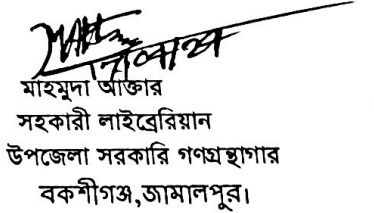 মাহমুদা আক্তার
সহকারী লাইব্রেরিয়ান
উপজেলা সরকারি গণগ্রন্থাগার
বকশীগঞ্জ,জামালপুর।